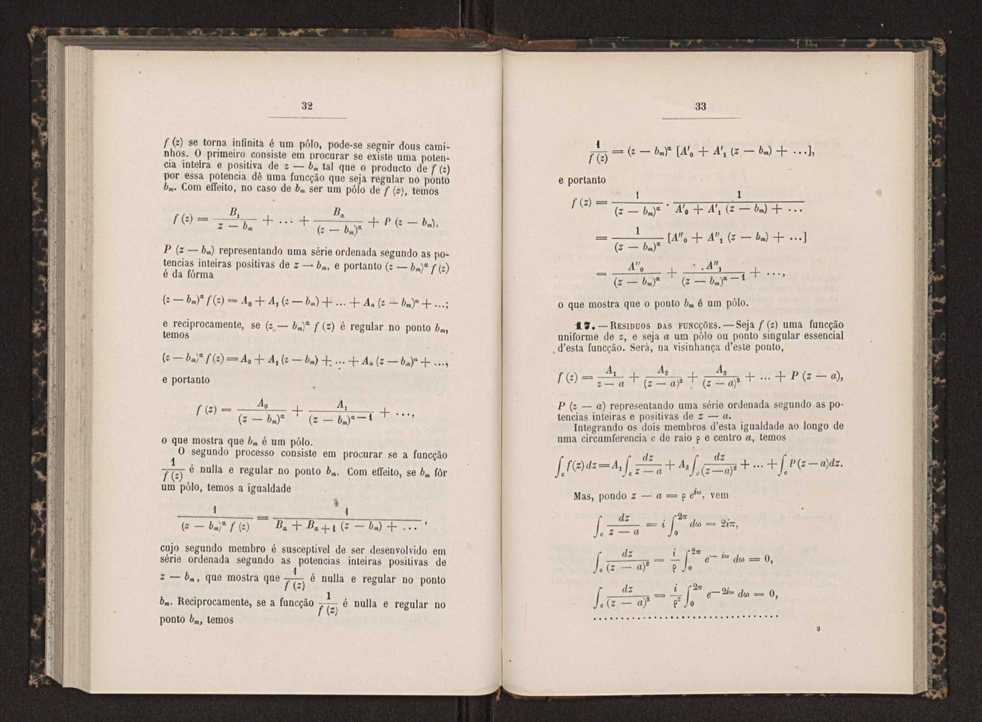 32
f (z) se torna infinita é um pólo, pode-se seguir dous cami-
nhos. O primeiro consiste em procurar se existe uma poten-
cia inteira e positiva de z — bₘ tal que o producto de f (z)
por essa potencia dê uma funcção que seja regular no ponto
bₘ. Com effeito, no caso de bₘ ser um pólo de f (z), temos
f (z) = B₁ / (z — bₘ) + ... + Bₐ / (z — bₘ)ᵃ + P (z — bₘ).
P (z — bₘ) representando uma série ordenada segundo as po-
tencias inteiras positivas de z — bₘ, e portanto (z — bₘ)ᵃ f (z)
é da fórma
(z — bₘ)ᵃ f (z) = A₀ + A₁ (z — bₘ) + ... + Aₐ (z — bₘ)ᵃ + ...;
e reciprocamente, se (z — bₘ)ᵃ f (z) é regular no ponto bₘ,
temos
(z — bₘ)ᵃ f (z) = A₀ + A₁ (z — bₘ) + ... + Aₐ (z — bₘ)ᵃ + ...,
e portanto
f (z) = A₀ / (z — bₘ)ᵃ + A₁ / (z — bₘ)ᵃ⁻¹ + ...,
o que mostra que bₘ é um pólo.
O segundo processo consiste em procurar se a funcção
1 / f (z) é nulla e regular no ponto bₘ. Com effeito, se bₘ fôr
um pólo, temos a igualdade
1 / (z — bₘ)ᵃ f (z) = 1 / Bₐ + Bₐ₊₁ (z — bₘ) + ... ,
cujo segundo membro é susceptivel de ser desenvolvido em
série ordenada segundo as potencias inteiras positivas de
z — bₘ, que mostra que 1 / f (z) é nulla e regular no ponto
bₘ. Reciprocamente, se a funcção 1 / f (z) é nulla e regular no
ponto bₘ, temos
33
1 / f (z) = (z — bₘ)ᵃ [A′₀ + A′₁ (z — bₘ) + ...],
e portanto
f (z) = 1 / (z — bₘ)ᵃ . 1 / A′₀ + A′₁ (z — bₘ) + ...
= 1 / (z — bₘ)ᵃ [A″₀ + A″₁ (z — bₘ) + ...]
= A″₀ / (z — bₘ)ᵃ + A″₁ / (z — bₘ)ᵃ⁻¹ + ...,
o que mostra que o ponto bₘ é um pólo.
17. — RESIDUOS DAS FUNCÇÕES. — Seja f (z) uma funcção
uniforme de z, e seja a um pólo ou ponto singular essencial
d'esta funcção. Será, na visinhança d'este ponto,
f (z) = A₁ / (z — a) + A₂ / (z — a)² + A₃ / (z — a)³ + ... + P (z — a),
P (z — a) representando uma série ordenada segundo as po-
tencias inteiras e positivas de z — a.
Integrando os dois membros d'esta igualdade ao longo de
uma circumferencia c de raio ρ e centro a, temos
∫c f(z) dz = A₁ ∫c dz / (z — a) + A₂ ∫c dz / (z — a)² + ... + ∫c P(z — a) dz.
Mas, pondo z — a = ρ e^{iω}, vem
∫c dz / (z — a) = i ∫₀^{2π} dω = 2iπ,
∫c dz / (z — a)² = i / ρ ∫₀^{2π} e^{— iω} dω = 0,
∫c dz / (z — a)³ = i / ρ² ∫₀^{2π} e^{—2iω} dω = 0,
. . . . . . . . . . . . . . . . . . . . . . . . . . . . . .
3